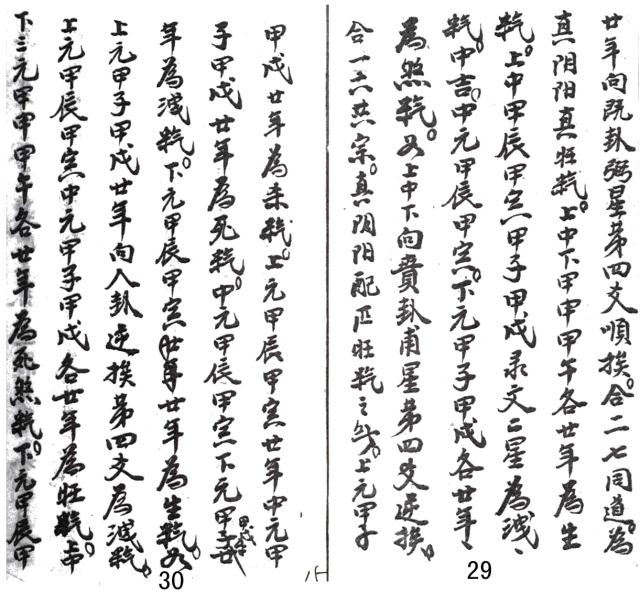 廿年向既卦弼星第四爻順挨。合二七同道。為
真阴阳真旺𣱛。上中下甲申甲午各廿年為生
𣱛。上中甲辰甲寅甲子甲戌录文二星為洩、
𣱛。中吉。中元甲辰甲寅。下元甲子甲戌各廿年、
為煞𣱛。又上中下向賁卦甫星第四爻逆挨。
合一六共宗。真阴阳配匹旺𣱛之。上元甲子
29
甲戌廿年為杀𣱛。上元甲辰甲寅廿年中元甲
子甲戌廿年為死𣱛。中元甲辰甲寅下元甲子
甲戌廿年為洩𣱛。下元甲辰甲寅廿年為生𣱛。又
上元甲子甲戌廿年向卦逆挨第四爻為洩𣱛。
上元甲辰甲寅中元甲子甲戌各廿年為旺𣱛。上中
下三元甲申甲午各廿年為死煞𣱛。下元甲辰甲
30